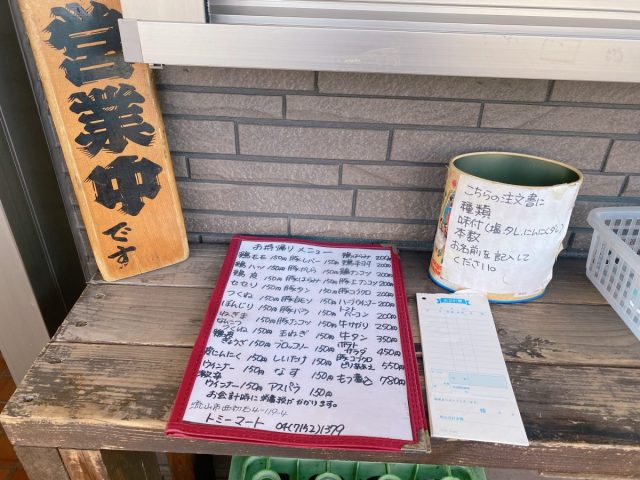 営業中です
お持帰りメニュー
鶏モモ 150円 豚レバー 150円 200円
鶏ハツ 150円 150円 鶏ナンコツ 200円
鶏皮 150円 150円 200円
セセリ 150円 豚タン 150円 200円
つくね 150円 150円 ハーブウインナー 200円
ぼんじり 150円 豚バラ 150円 トマトベーコン 200円
ねぎま 150円 豚ナンコツ 150円 牛カガリ 250円
なんこつつくね 150円 玉ねぎ 150円 牛タン 350円
ぎょうざ 150円 ブロッコリー 150円 ポテトサラダ 450円
にんにく 150円 しいたけ 150円 550円
ウインナー 150円 なす 150円 もつ煮込 780円
ウインナー 150円 アスパラ 150円
お会計時に消費税がかかります。
流山市西初石4-119-4
トミーマート 04(7152)1379
こちらの注文書に
種類
味付(塩,タレ,にんにくダレ)
本数
お名前を記入して
ください。